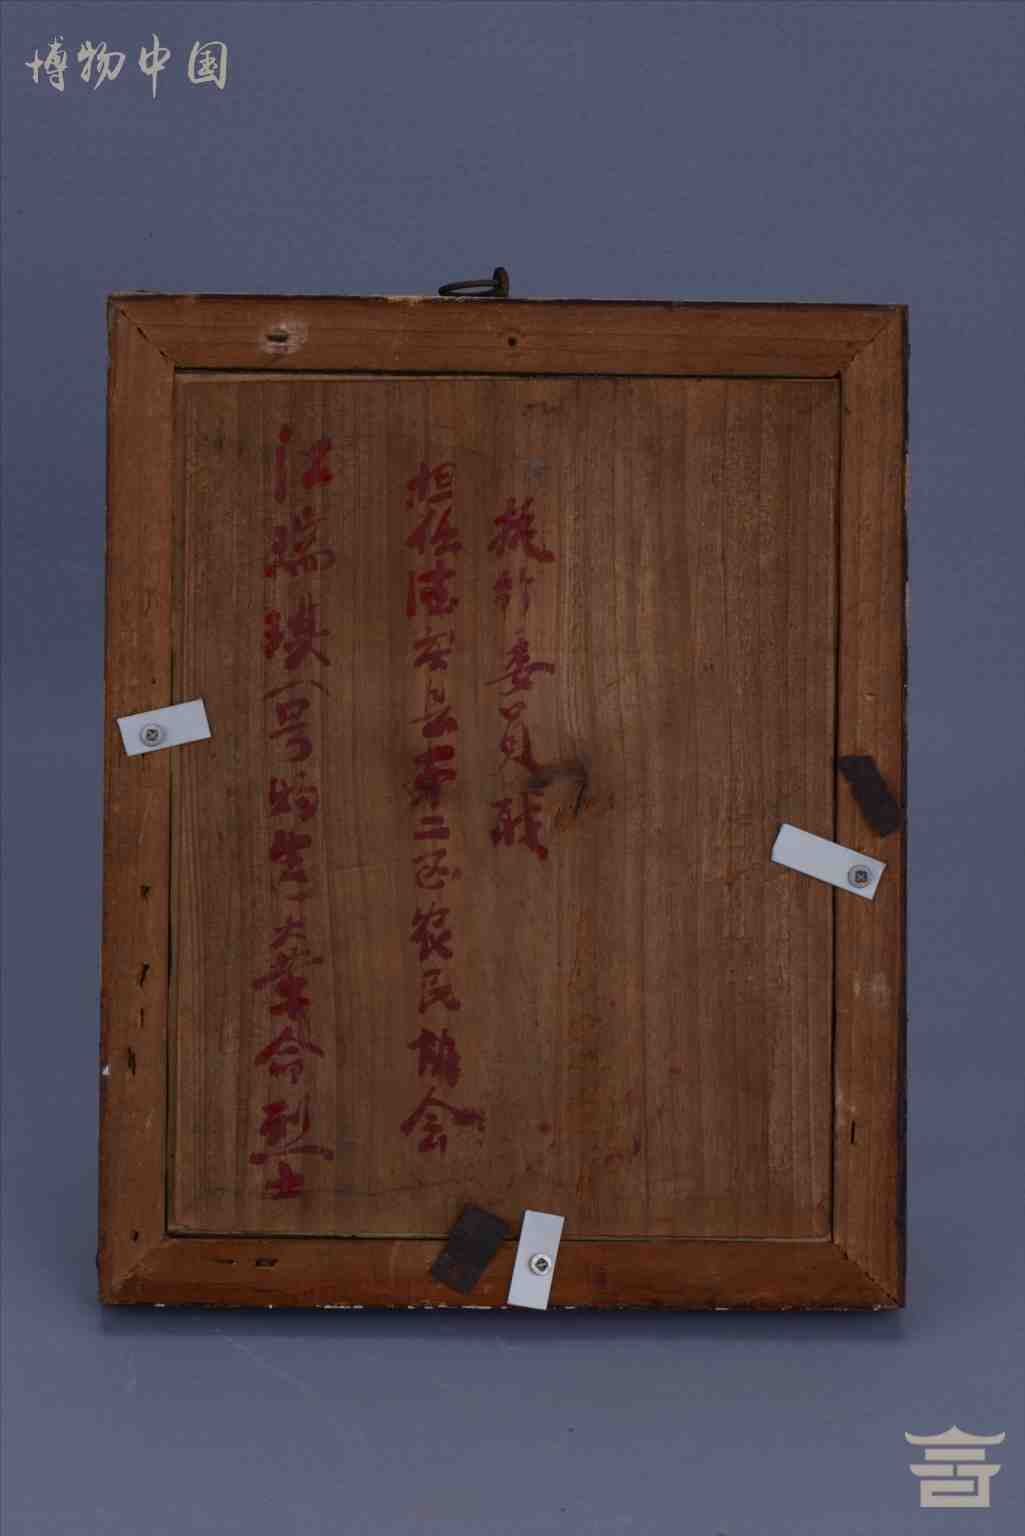 博物中国
江瑞瑛（号 生）大革命烈士
担任德安县第二区农民协会
执行委员职